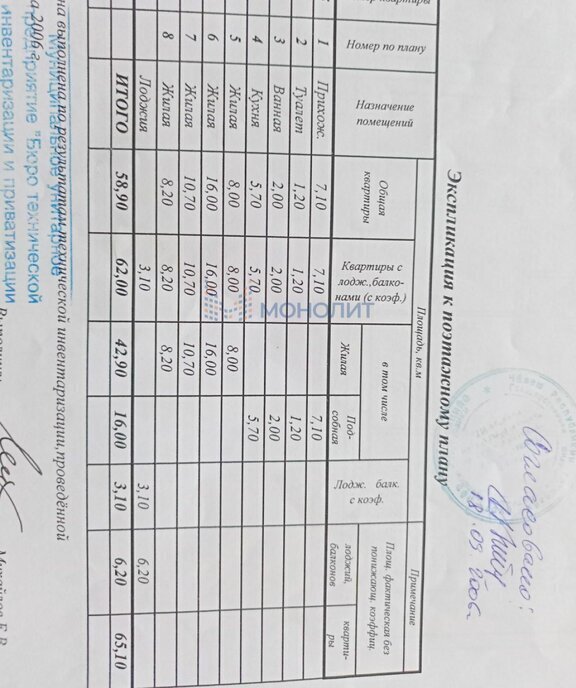 Экспликация к поэтажному плану
Номер по плану
Назначение помещений
Площадь, кв.м
Примечание
Общая квартиры
Квартиры с лодж.,балко-нами (с коэф.)
в том числе
Жилая
Под-собная
Лодж. балк. с коэф.
Площ. фактическая без понижающ. коэффиц.
лоджий, балконов
кварти-ры
1 Прихож. 7,10 7,10 7,10
2 Туалет 1,20 1,20 1,20
3 Ванная 2,00 2,00 2,00
4 Кухня 5,70 5,70 5,70
5 Жилая 8,00 8,00 8,00
6 Жилая 16,00 16,00 16,00
7 Жилая 10,70 10,70 10,70
8 Жилая 8,20 8,20 8,20
Лоджия 3,10 3,10 6,20
ИТОГО 58,90 62,00 42,90 16,00 3,10 6,20 65,10
на выполнена по результатам технической инвентаризации,проведённой
а 2006 г.
Муниципальное унитарное
предприятие "Бюро технической
инвентаризации и приватизации
Михайлов Е.В.
Согласовано:
18.09.2006.
МОНОЛИТ